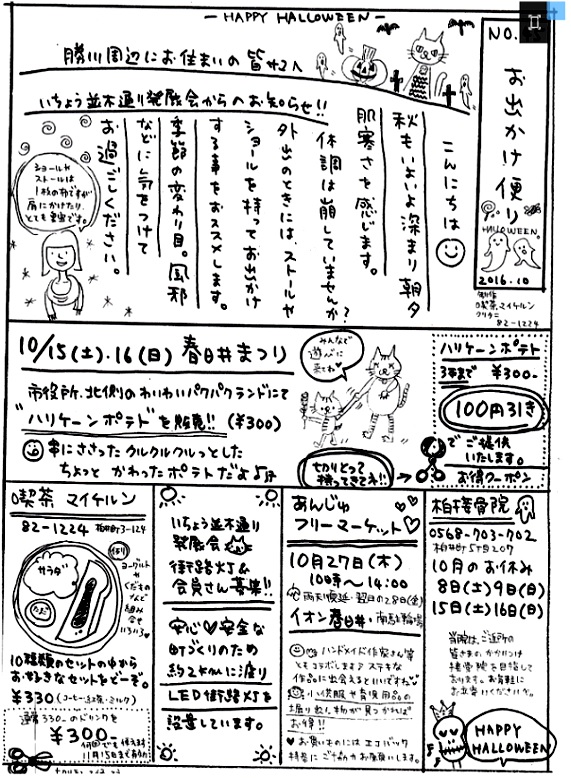 - HAPPY HALLOWEEN -
勝川周辺にお住まいの皆サンへ
いちょう並木通り発展会からのお知らせ!!
NO.
お出かけ便り
HALLOWEEN
2016.10
喫茶マイケルン
82-1224
こんにちは
秋もいよいよ深まり朝夕
肌寒さを感じます。
体調は崩していませんか?
外出のときには、ストールや
ショールを持ってお出かけ
する事をおススメします。
季節の変わり目。風邪
などに気をつけて
お過ごしください。
ショールや
ストールは
1枚の布ですが
肩にかけたり、
とても重宝です。
10/15(土).16(日) 春日井まつり
市役所.北側のわいわいパクパクランドにて
"ハリケーンポテト"を販売!! (¥300)
串にささったクルクルクルっとした
ちょっと かわったポテトだよ♪♪
みんなで
遊びに
来てね
切りとって
持ってきてネ!!
ハリケーンポテト
3本まで ¥300-
100円引き
でご提供
いたします。
お得クーポン
喫茶 マイケルン
82-1224 柏井町3-124
サラダ
たまご
ヨーグルト
や
くだもの
など
組み
合せ
いろいろ
10種類のセットの中から
お好きなセットをどーぞ。
¥330 (コーヒー・紅茶・ミルク)
通常330-のドリンクを
¥300-
何回でも使えます
11月15日まで有効
いちょう並木通り
発展会
街路灯&
会員さん募集!!
安心♡安全な
町づくりのため
約2kmに渡り
LED街路灯を
設置しています。
あんじゅ
フリーマーケット♡
10月27日(木)
10時〜14:00
雨天順延・翌日の28日(金)
イオン春日井・南駐輪場
ハンドメイド作家さん等
ともコラボします♪ステキな
作品に出会えるといいですね
子供服や育児用品の
掘り出し物が見つかれば
お得!!
♥お買いものにはエコバック
持参にご協力お願いします。
柏接骨院
0568-703-702
柏井町5丁目207
10月のお休み
8日(土)9日(日)
15日(土)16日(日)
当院は、ご近所の
皆さまの、かかりつけ
接骨院を目指して
おります。お気軽に
お立寄りくださいね。
HAPPY
HALLOWEEN